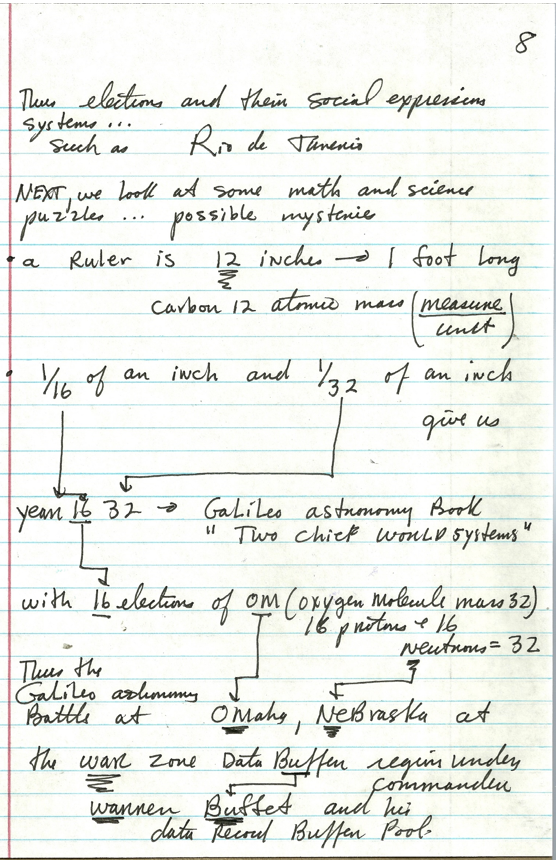 8
Thus elections and their social expression
systems ...
such as Rio de Janerio
NEXT, we look at some math and science
puzzles ... possible mysteries
• a Ruler is 12 inches → 1 foot long
carbon 12 atomic mass (measure/unit)
• 1/16 of an inch and 1/32 of an inch
give us
year 16 32 → Galileo astronomy Book
" Two chief WORLD Systems "
with 16 elections of OM (oxygen Molecule mass 32)
16 protons + 16
neutrons = 32
Thus the
Galileo astronomy
Battle at OMaha, NeBraska at
the war zone Data Buffer region under
commander
warren Buffet and his
data Record Buffer Pool